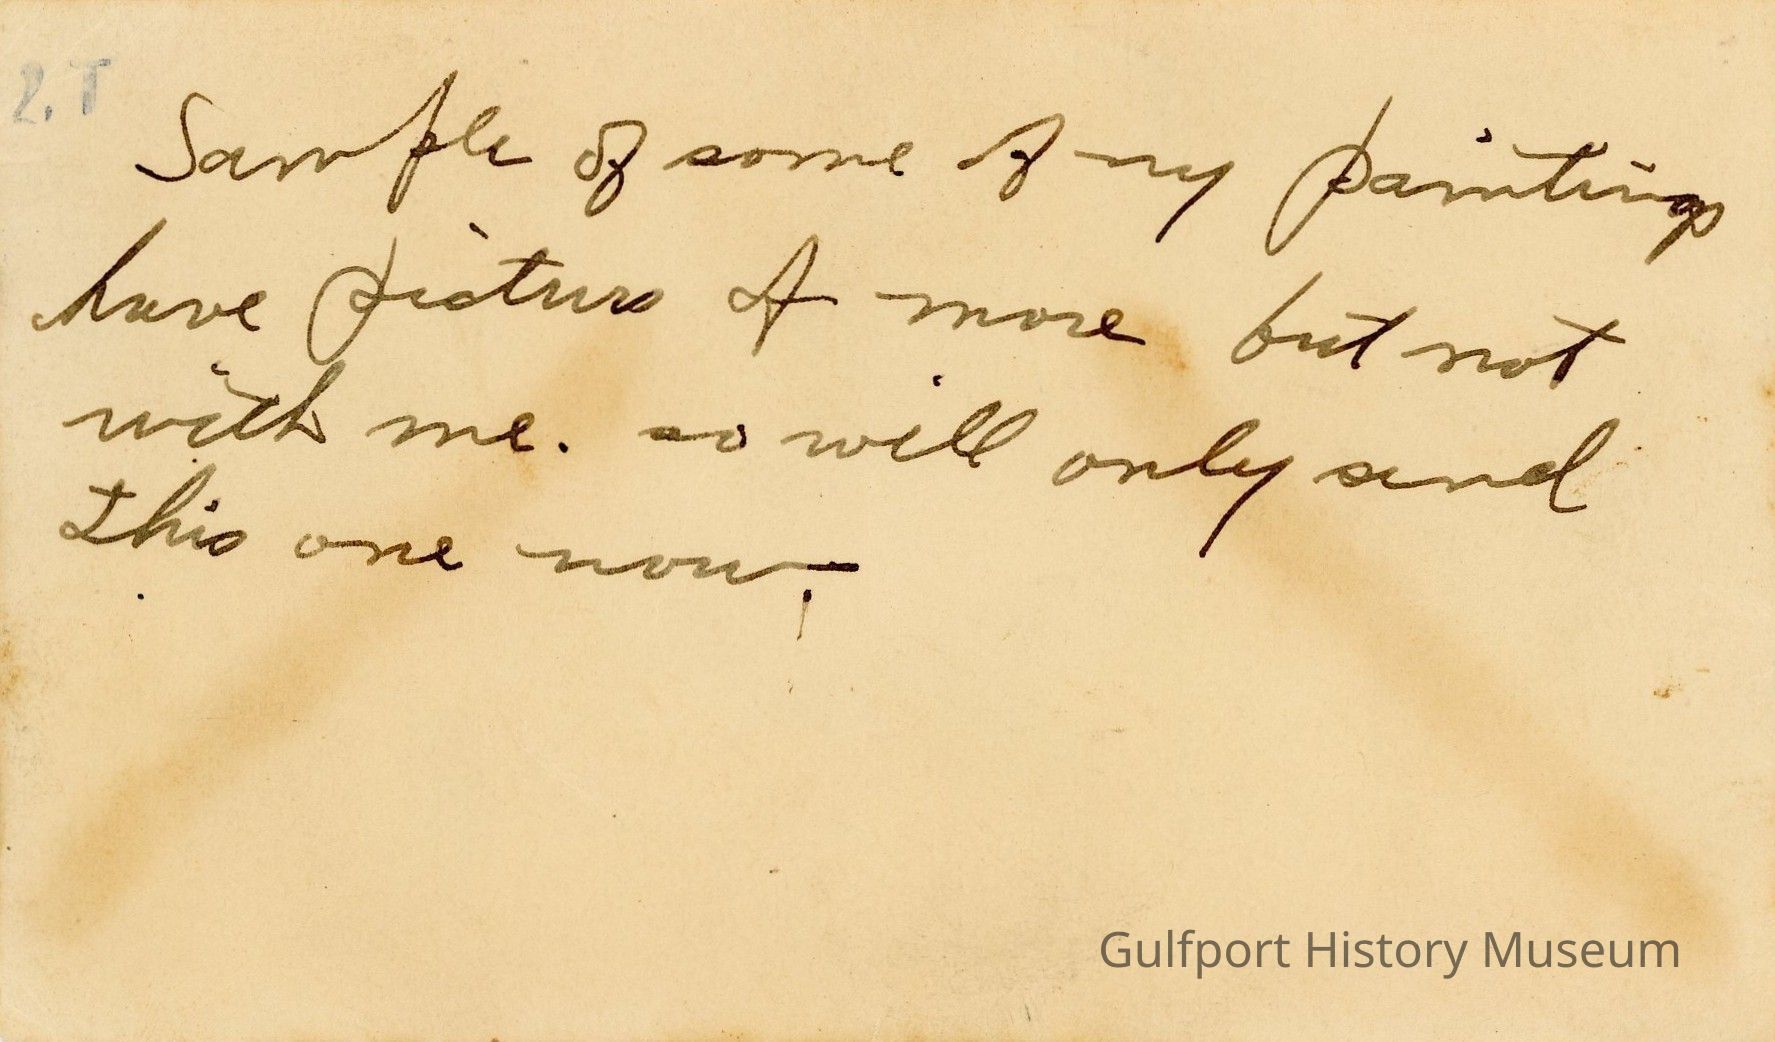 2. T
Sample of some of my paintings
have pictures of more but not
with me. so will only send
this one now.
Gulfport History Museum